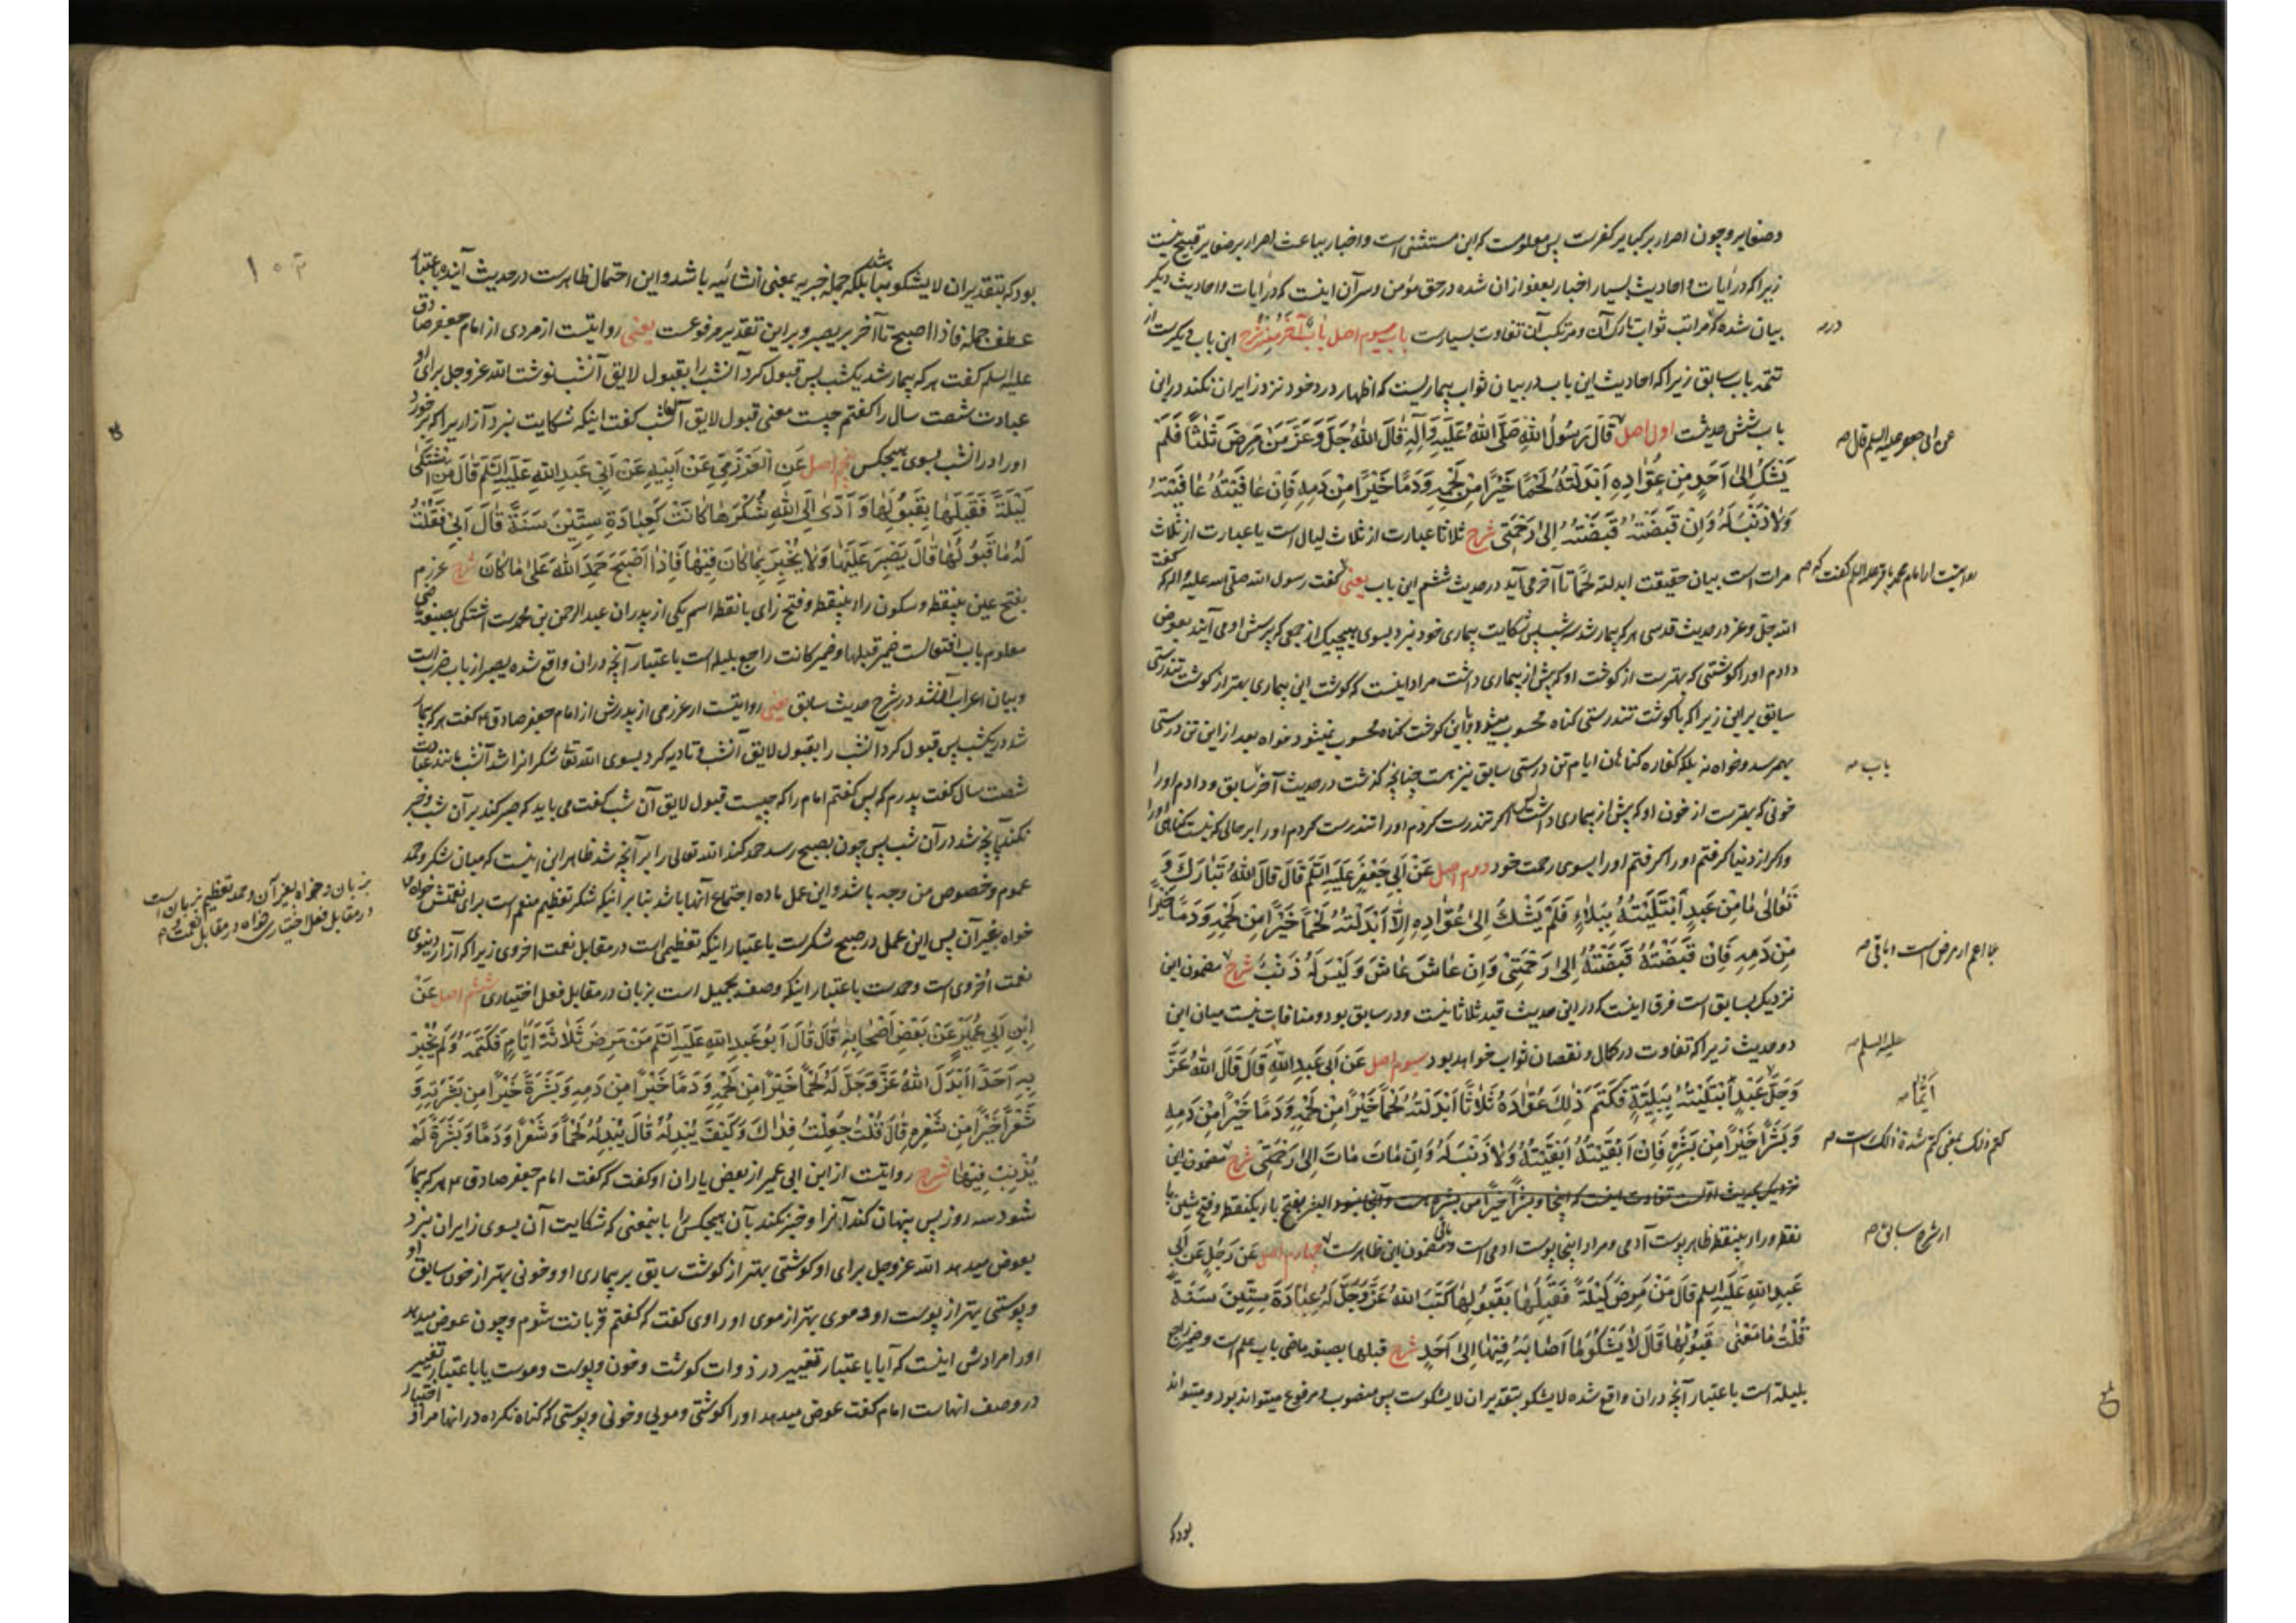 وصغایر و چون اصرار بر کبایر کفرست پس معلومست که این مستثنی است و اخبار بباعث اصرار بر صغایر قبیح نیست
زیرا که در آیات و احادیث بسیار اخبار بعفو ازان شده در حق مؤمن و سر آن اینست که در آیات و احادیث دیگر
بیان شده که مراتب ثواب تارک آن و مرتکب آن تفاوت بسیارست باب سیوم اصل باب آخر منه شرح این باب دیگرست از
درمه
تتمه باب سابق زیرا که احادیث این باب در بیان ثواب بیماریست که اظهار درد خود نزد زایران نکند درین
باب شش حدیثست اول اصل قَالَ رَسُولُ اللهِ صَلَّى اللهُ عَلَيْهِ وَآلِهِ قَالَ اللهُ جَلَّ وَعَزَّ مَنْ مَرِضَ ثَلٰثًا فَلَمْ
عن ابی جعفر علیه السلم قال صه
يَشْكُ اِلىٰ اَحَدٍ مِنْ عُوَّادِهِ اَبْدَلْتُهُ لَحْمًا خَيْرًا مِنْ لَحْمِهِ وَدَمًا خَيْرًا مِنْ دَمِهِ فَاِنْ عَافَيْتُهُ عَافَيْتُهُ
وَلَا ذَنْبَ لَهُ وَاِنْ قَبَضْتُهُ قَبَضْتُهُ اِلىٰ رَحْمَتِى شرح ثلاثا عبارت از ثلاث لیال است یا عبارت از ثلاث
مرات است بیان حقیقت ابدلته لحمًا تا آخر می آید در حدیث ششم این باب یعنی گفت رسول الله صلی الله علیه و اله که گفت
روایتست از امام محمد باقر علیه السلم گفت که صه
الله جل وعز در حدیث قدسی هر که بیمار شد سه شب پس شکایت بیماری خود نبرد بسوی هیچیک از جمعی که پرسش او می آیند بعوض
دادم او را گوشتی که بهترست از گوشت او که پیش از بیماری داشت مراد اینست که گوشت این بیماری بهتر از گوشت تندرستی
سابق برین زیرا که با گوشت تندرستی گناه محسوب میشود و با این گوشت گناه محسوب نمیشود خواه بعد از این تن درستی
بهمرسد و خواه نه بلکه کفاره گناهان ایام تن درستی سابق نیز هست چنانچه گذشت در حدیث آخر سابق و دادم او را
باب صه
خونی که بهترست از خون او که پیش از بیماری داشت پس اگر تندرست کردم او را تندرست کردم او را بر حالی که نیست گناهی او را
و اگر از دنیا گرفتم او را گرفتم او را بسوی رحمت خود دوم اصل عَنْ اَبِي جَعْفَرٍ عَلَيْهِ السَّلَمُ قَالَ قَالَ اللهُ تَبَارَكَ وَ
تَعَالىٰ مَا مِنْ عَبْدٍ اَبْتَلَيْتُهُ بِبَلَاءٍ فَلَمْ يَشْكُ اِلىٰ عُوَّادِهِ اِلَّا اَبْدَلْتُهُ لَحْمًا خَيْرًا مِنْ لَحْمِهِ وَدَمًا خَيْرًا
مِنْ دَمِهِ فَاِنْ قَبَضْتُهُ قَبَضْتُهُ اِلىٰ رَحْمَتِى وَاِنْ عَاشَ عَاشَ وَلَيْسَ لَهُ ذَنْبٌ شرح مضمون این
بلا اعم از مرض است و باقی صه
نزدیک بسابق است فرق اینست که در این حدیث قید ثلاثا نیست و در سابق بود و منافات نیست میان این
دو حدیث زیرا که تفاوت در کمال و نقصان ثواب خواهد بود سیوم اصل عَنْ اَبِي عَبْدِ اللهِ قَالَ قَالَ اللهُ عَزَّ
علیه السلم صه
وَجَلَّ عَبْدٍ اَبْتَلَيْتُهُ بِبَلِيَّةٍ فَكَتَمَ ذٰلِكَ عُوَّادَهُ ثَلَاثًا اَبْدَلْتُهُ لَحْمًا خَيْرًا مِنْ لَحْمِهِ وَدَمًا خَيْرًا مِنْ دَمِهِ
اَيُّمَا صه
وَبَشَرًا خَيْرًا مِنْ بَشَرِهِ فَاِنْ اَبْقَيْتُهُ اَبْقَيْتُهُ وَلَا ذَنْبَ لَهُ وَاِنْ مَاتَ مَاتَ اِلىٰ رَحْمَتِى شرح مضمون این
نزدیک بحدیث اولست تفاوت اینست که اینجا وبشرًا خیرًا من بشره هست و آنجا نبود البشر بفتح باء یکنقطه و فتح شین با
نقطه و راء بینقطه ظاهر پوست آدمی و مراد اینجا پوست آدمی است و باقی مضمون این ظاهرست چهارم اصل عَنْ رَجُلٍ عَنْ اَبِي
از شرح سابق صه
عَبْدِ اللهِ عَلَيْهِ السلم قَالَ مَنْ مَرِضَ لَيْلَةً فَقَبِلَهَا بِقَبُولِهَا كَتَبَ اللهُ عَزَّ وَجَلَّ لَهُ عِبَادَةَ سِتِّينَ سَنَةً
قُلْتُ مَا مَعْنَى قَبُولِهَا قَالَ لَا يَشْكُو مَا اَصَابَهُ فِيهَا اِلىٰ اَحَدٍ شرح قبلها بصیغه ماضی باب علم است و ضمیر راجع
بلیله است باعتبار آنچه دران واقع شده لا یشکو بتقدیر ان لا یشکوست پس منصوب و مرفوع میتواند بود و میتواند
بود که
بود که بتقدیر ان لا یشکو نباشد بلکه جمله خبریه بمعنی انشائیه باشد و این احتمال ظاهرست در حدیث آینده باعتبار
عطف جمله فاذا اصبح تا آخر بر یصبر و بر این تقدیر مرفوعست یعنی روایتست از مردی از امام جعفر صادق
علیه السلم گفت هر که بیمار شد یکشب پس قبول کرد آنشب را بقبول لایق آنشب نوشت الله عز وجل برای او
عبادت شصت سال را گفتم چیست معنی قبول لایق آنشب گفت اینکه شکایت نبرد آزاریرا که بر خورد
او را در انشب بسوی هیچکس پنجم اصل عَنِ الْعَرْزَمِيِّ عَنْ اَبِيْهِ عَنْ اَبِي عَبْدِ اللهِ عَلَيْهِ السَّلَمُ قَالَ مَنِ اشْتَكىٰ
لَيْلَةً فَقَبِلَهَا بِقَبُولِهَا وَاَدّىٰ اِلَى اللهِ شُكْرَهَا كَانَتْ كَعِبَادَةِ سِتِّيْنَ سَنَةً قَالَ اَبِي فَقُلْتُ
لَهُ مَا قَبُولُهَا قَالَ يَصْبِرُ عَلَيْهَا وَلَا يُخْبِرُ بِمَا كَانَ فِيْهَا فَاِذَا اَصْبَحَ حَمِدَ اللهَ عَلىٰ مَا كَانَ شرح عرزم
بفتح عین بینقطه و سکون راء بینقطه و فتح زای با نقطه اسم یکی از پدران عبد الرحمن بن محمدست اشتکی بصیغه ماضی
معلوم باب افتعالست ضمیر قبلها و ضمیر کانت راجع بلیله است باعتبار آنچه دران واقع شده یصبر از باب ضرب است
و بیان اعراب شد در شرح حدیث سابق یعنی روایتست از عرزمی از پدرش از امام جعفر صادق ع گفت هر که بیمار
شد در یکشب پس قبول کرد آنشب را بقبول لایق آنشب و تادیه کرد بسوی الله تعالی شکر انرا شد آنشب مانند عبادت
شصت سال گفت پدرم که پس گفتم امام را که چیست قبول لایق آن شب گفت می باید که صبر کند بر آن شب و خبر
نکند بآنچه شد در آن شب پس چون بصبح رسد حمد کند الله تعالی را بر آنچه شد ظاهر این اینست که میان شکر و حمد
عموم و خصوص من وجه باشد و این عمل ماده اجتماع آنها باشد بنا بر اینکه شکر تعظیم منعم است برای نعمتش خواه
بزبان و خواه بغیر آن و حمد تعظیم بزبان است
در مقابل فعل اختیاری خواه در مقابل نعمت صه
خواه بغیر آن پس این عمل در صبح شکرست باعتبار اینکه تعظیمی است در مقابل نعمت اخروی زیرا که آزار دنیوی
نعمت اخروی است و حمدست باعتبار اینکه وصف بجمیل است بزبان در مقابل فعل اختیاری ششم اصل عَنْ
اِبْنِ اَبِي عُمَيْرٍ عَنْ بَعْضِ اَصْحَابِهِ قَالَ قَالَ اَبُو عَبْدِ اللهِ عَلَيْهِ السَّلَمُ مَنْ مَرِضَ ثَلَاثَةَ اَيَّامٍ فَكَتَمَهُ وَلَمْ يُخْبِرْ
بِهِ اَحَدًا اَبْدَلَ اللهُ عَزَّ وَجَلَّ لَهُ لَحْمًا خَيْرًا مِنْ لَحْمِهِ وَدَمًا خَيْرًا مِنْ دَمِهِ وَبَشَرَةً خَيْرًا مِنْ بَشَرَتِهِ وَ
شَعْرًا خَيْرًا مِنْ شَعْرِهِ قَالَ قُلْتُ جُعِلْتُ فِدَاكَ وَكَيْفَ يُبْدِلُهُ قَالَ يُبْدِلُهُ لَحْمًا وَشَعْرًا وَدَمًا وَبَشَرَةً لَمْ
يُذْنِبْ فِيْهَا شرح روایتست از ابن ابی عمیر از بعض یاران او گفت که گفت امام جعفر صادق ع هر که بیمار
شود سه روز پس پنهان کند آنرا و خبر نکند بآن هیچکس را باینمعنی که شکایت آن بسوی زایران نبرد
بعوض میدهد الله عز وجل برای او گوشتی بهتر از گوشت سابق بر بیماری او و خونی بهتر از خون سابق او
و پوستی بهتر از پوست او و موی بهتر از موی او راوی گفت که گفتم قربانت شوم و چون عوض میدهد
او را مرادش اینست که آیا باعتبار تغییر در ذوات گوشت و خون و پوست و موست یا باعتبار تغییر
در وصف انهاست امام گفت عوض میدهد او را گوشتی و مویی و خونی و پوستی که گناه نکرده در انها مراد اختیار